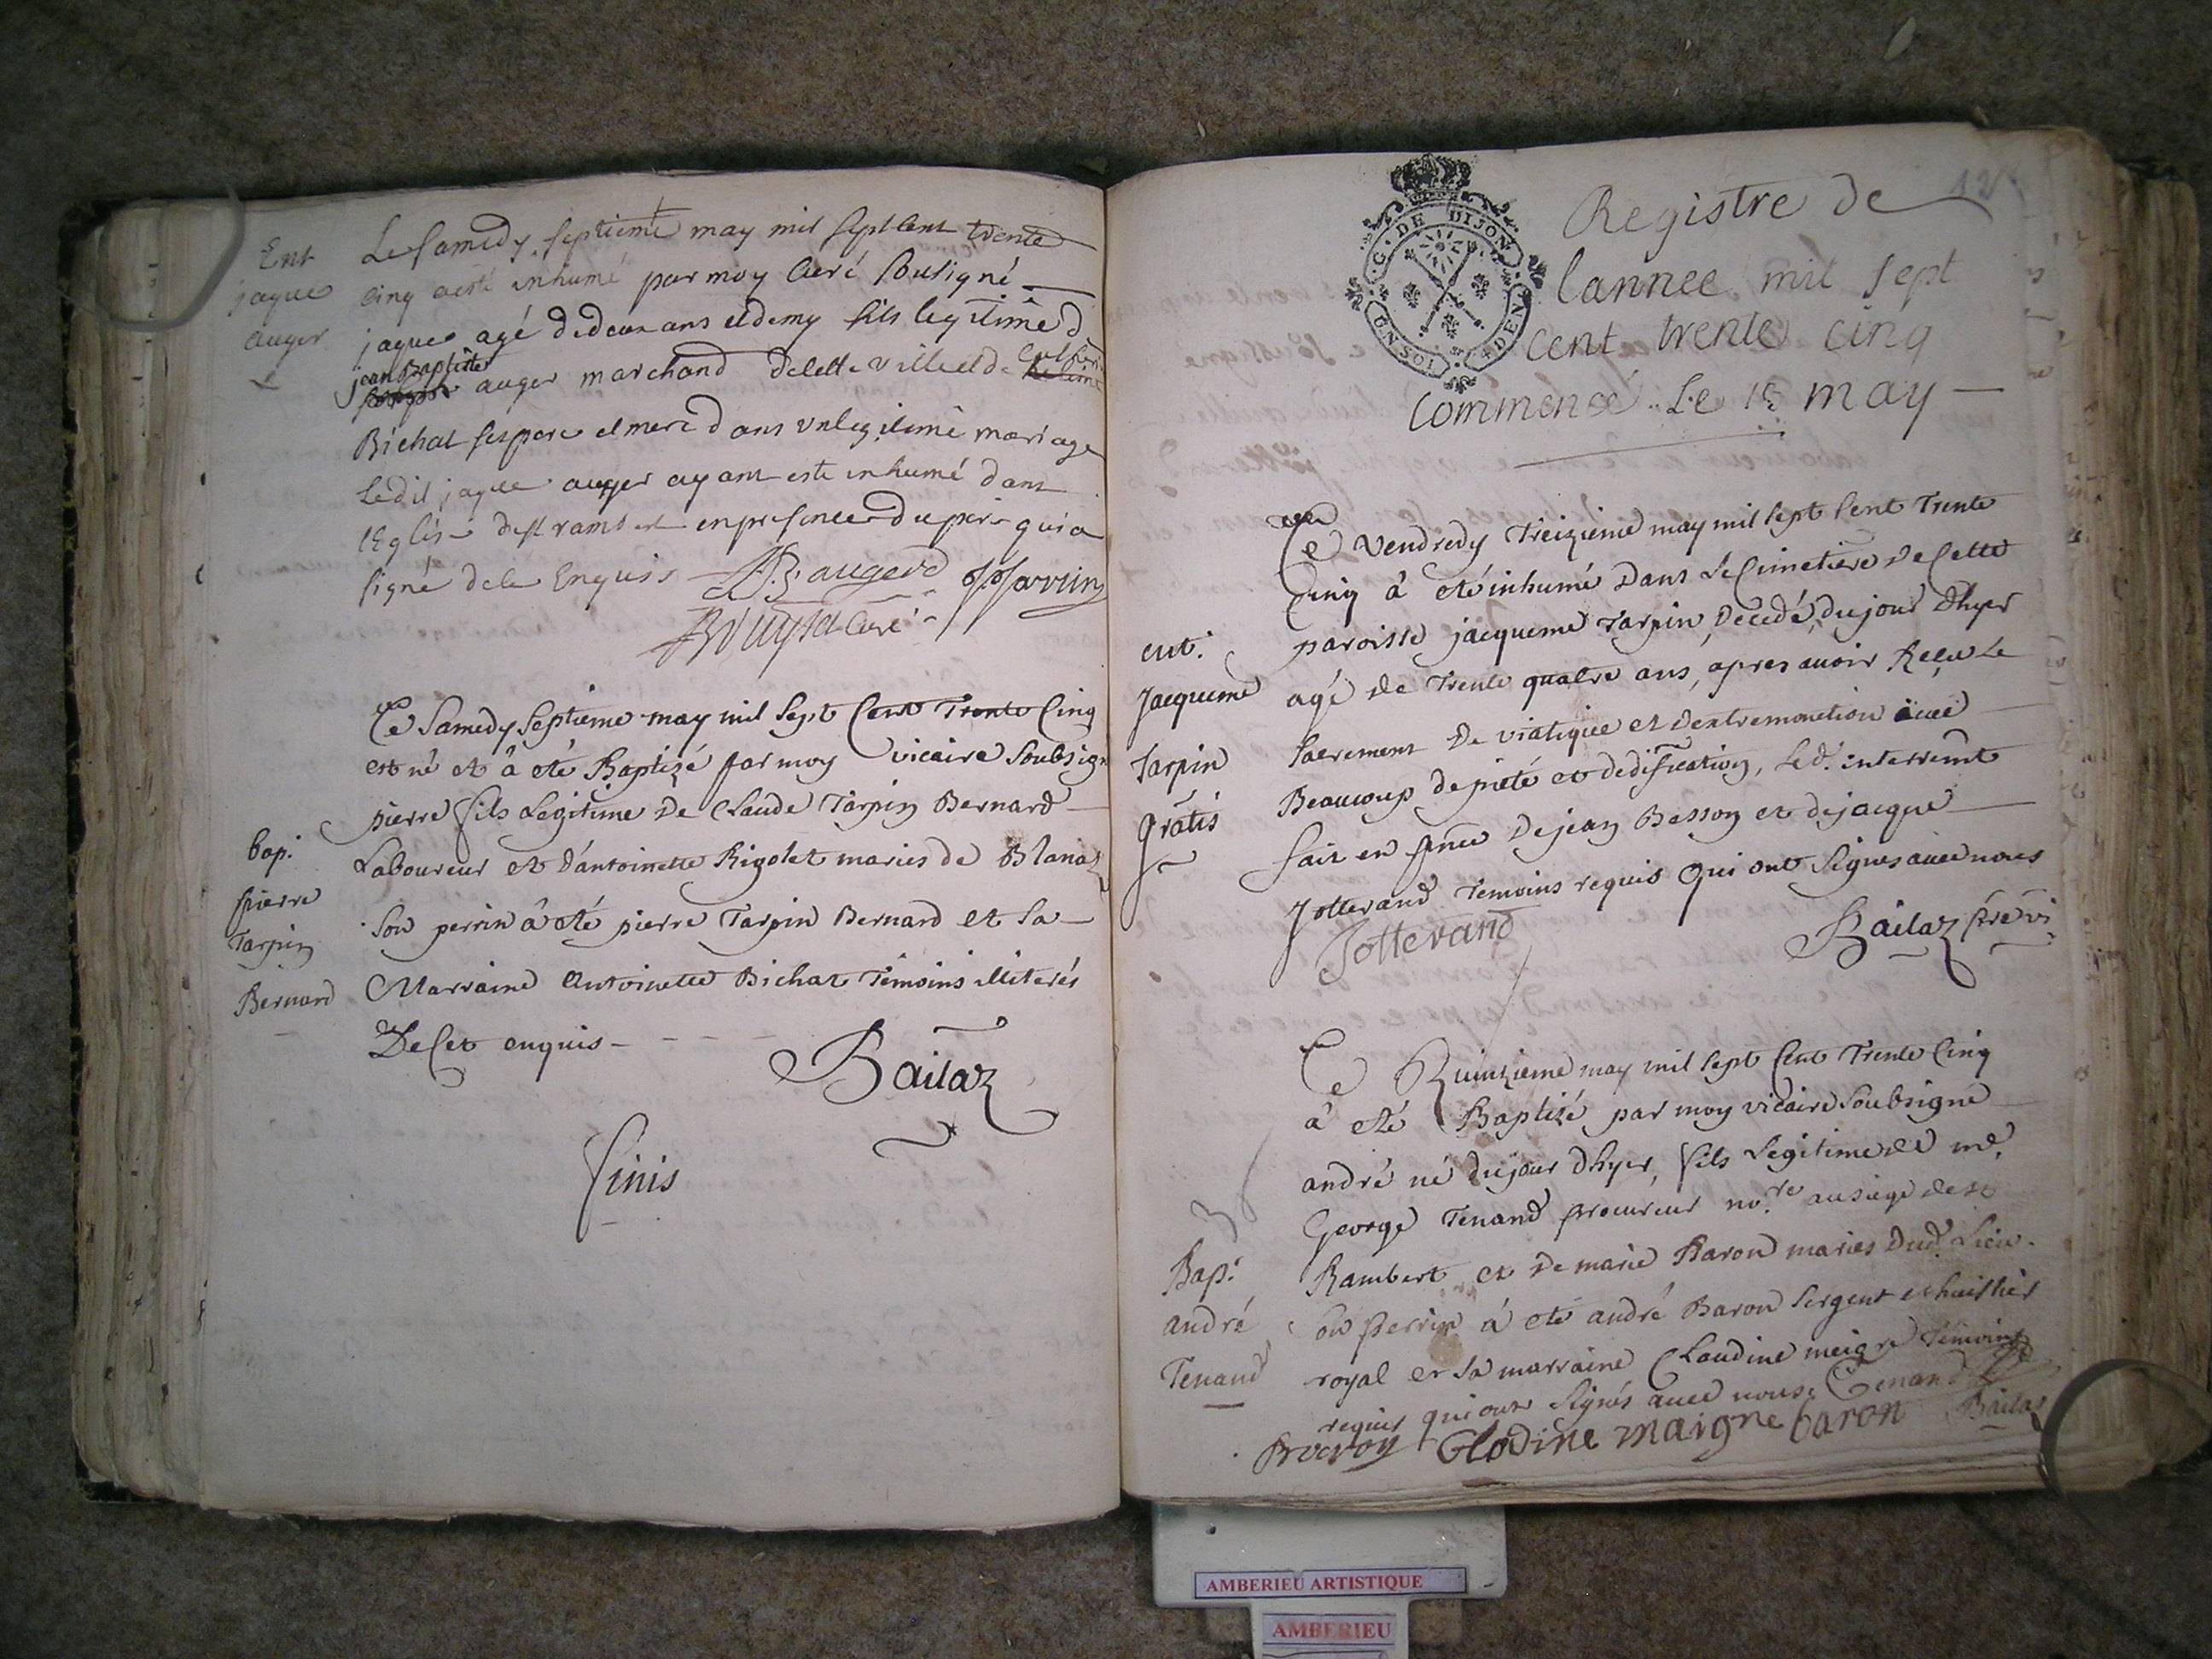 Ent
jaque
auger
Le samedy septieme may mil sept cent trente
cinq a esté inhumé par moy Curé sousigné
jaque agé de deux ans et demy fils legitime d
jean Baptiste
auger marchand de cette ville et de
Bichat ses pere et mere dans un legitime mariage
Ledit jaque auger ayant esté inhumé dans
l'Eglise de st rambert en presence du pere qui a
signé de ce enquis J B auger
Curé
bap.
pierre
Tarpin
Bernard
Ce Samedy septieme may mil sept Cent Trente Cinq
est né et à eté Baptizé par moy vicaire Soubsigné
pierre fils Legitime De Claude Tarpin Bernard
Laboureur et d'antoinette Rigolet maries de Blanaz
Son perrin à eté pierre Tarpin Bernard et sa
Marraine Antoinette Bichat Témoins illiterés
De Cet enquis
Bailaz
finis
12
G. DE DIJON
Registre de
lannee mil sept
cent trente cinq
commencé Le 13 may
ent.
Jacqueme
Tarpin
gratis
Ce vendredy Treizieme may mil sept Cent Trente
Cinq à eté inhumé Dans Le Cimetiere De Cette
paroisse jacqueme Tarpin, Decedé, du jour d'hyer
agé de Trente quatre ans, apres avoir Reçu Le
sacrement De viatique et d'extremonction avec
Beaucoup de pieté et dedification, led. interremt
fait en pnce De jean Besson et de jacque
Jotterand Temoins requis Qui ont signes avec nous
Jotterand
Bailaz pre vi.
Bap.
andré
Tenand
Ce Quinzieme may mil sept Cent Trente Cinq
à eté Baptizé par moy vicaire Soubsigné
andré né du jour d'hyer, fils Legitime de me
George Tenand procureur no.re au siege de st
Rambert et De marie Baron maries Dud. Lieu.
Son perrin à eté andré Baron sergent et huissier
royal et sa marraine Claudine meigre Témoins
requis qui ont signés avec nous. Tenand
Glodine maigre baron Bailaz
AMBERIEU ARTISTIQUE
AMBERIEU